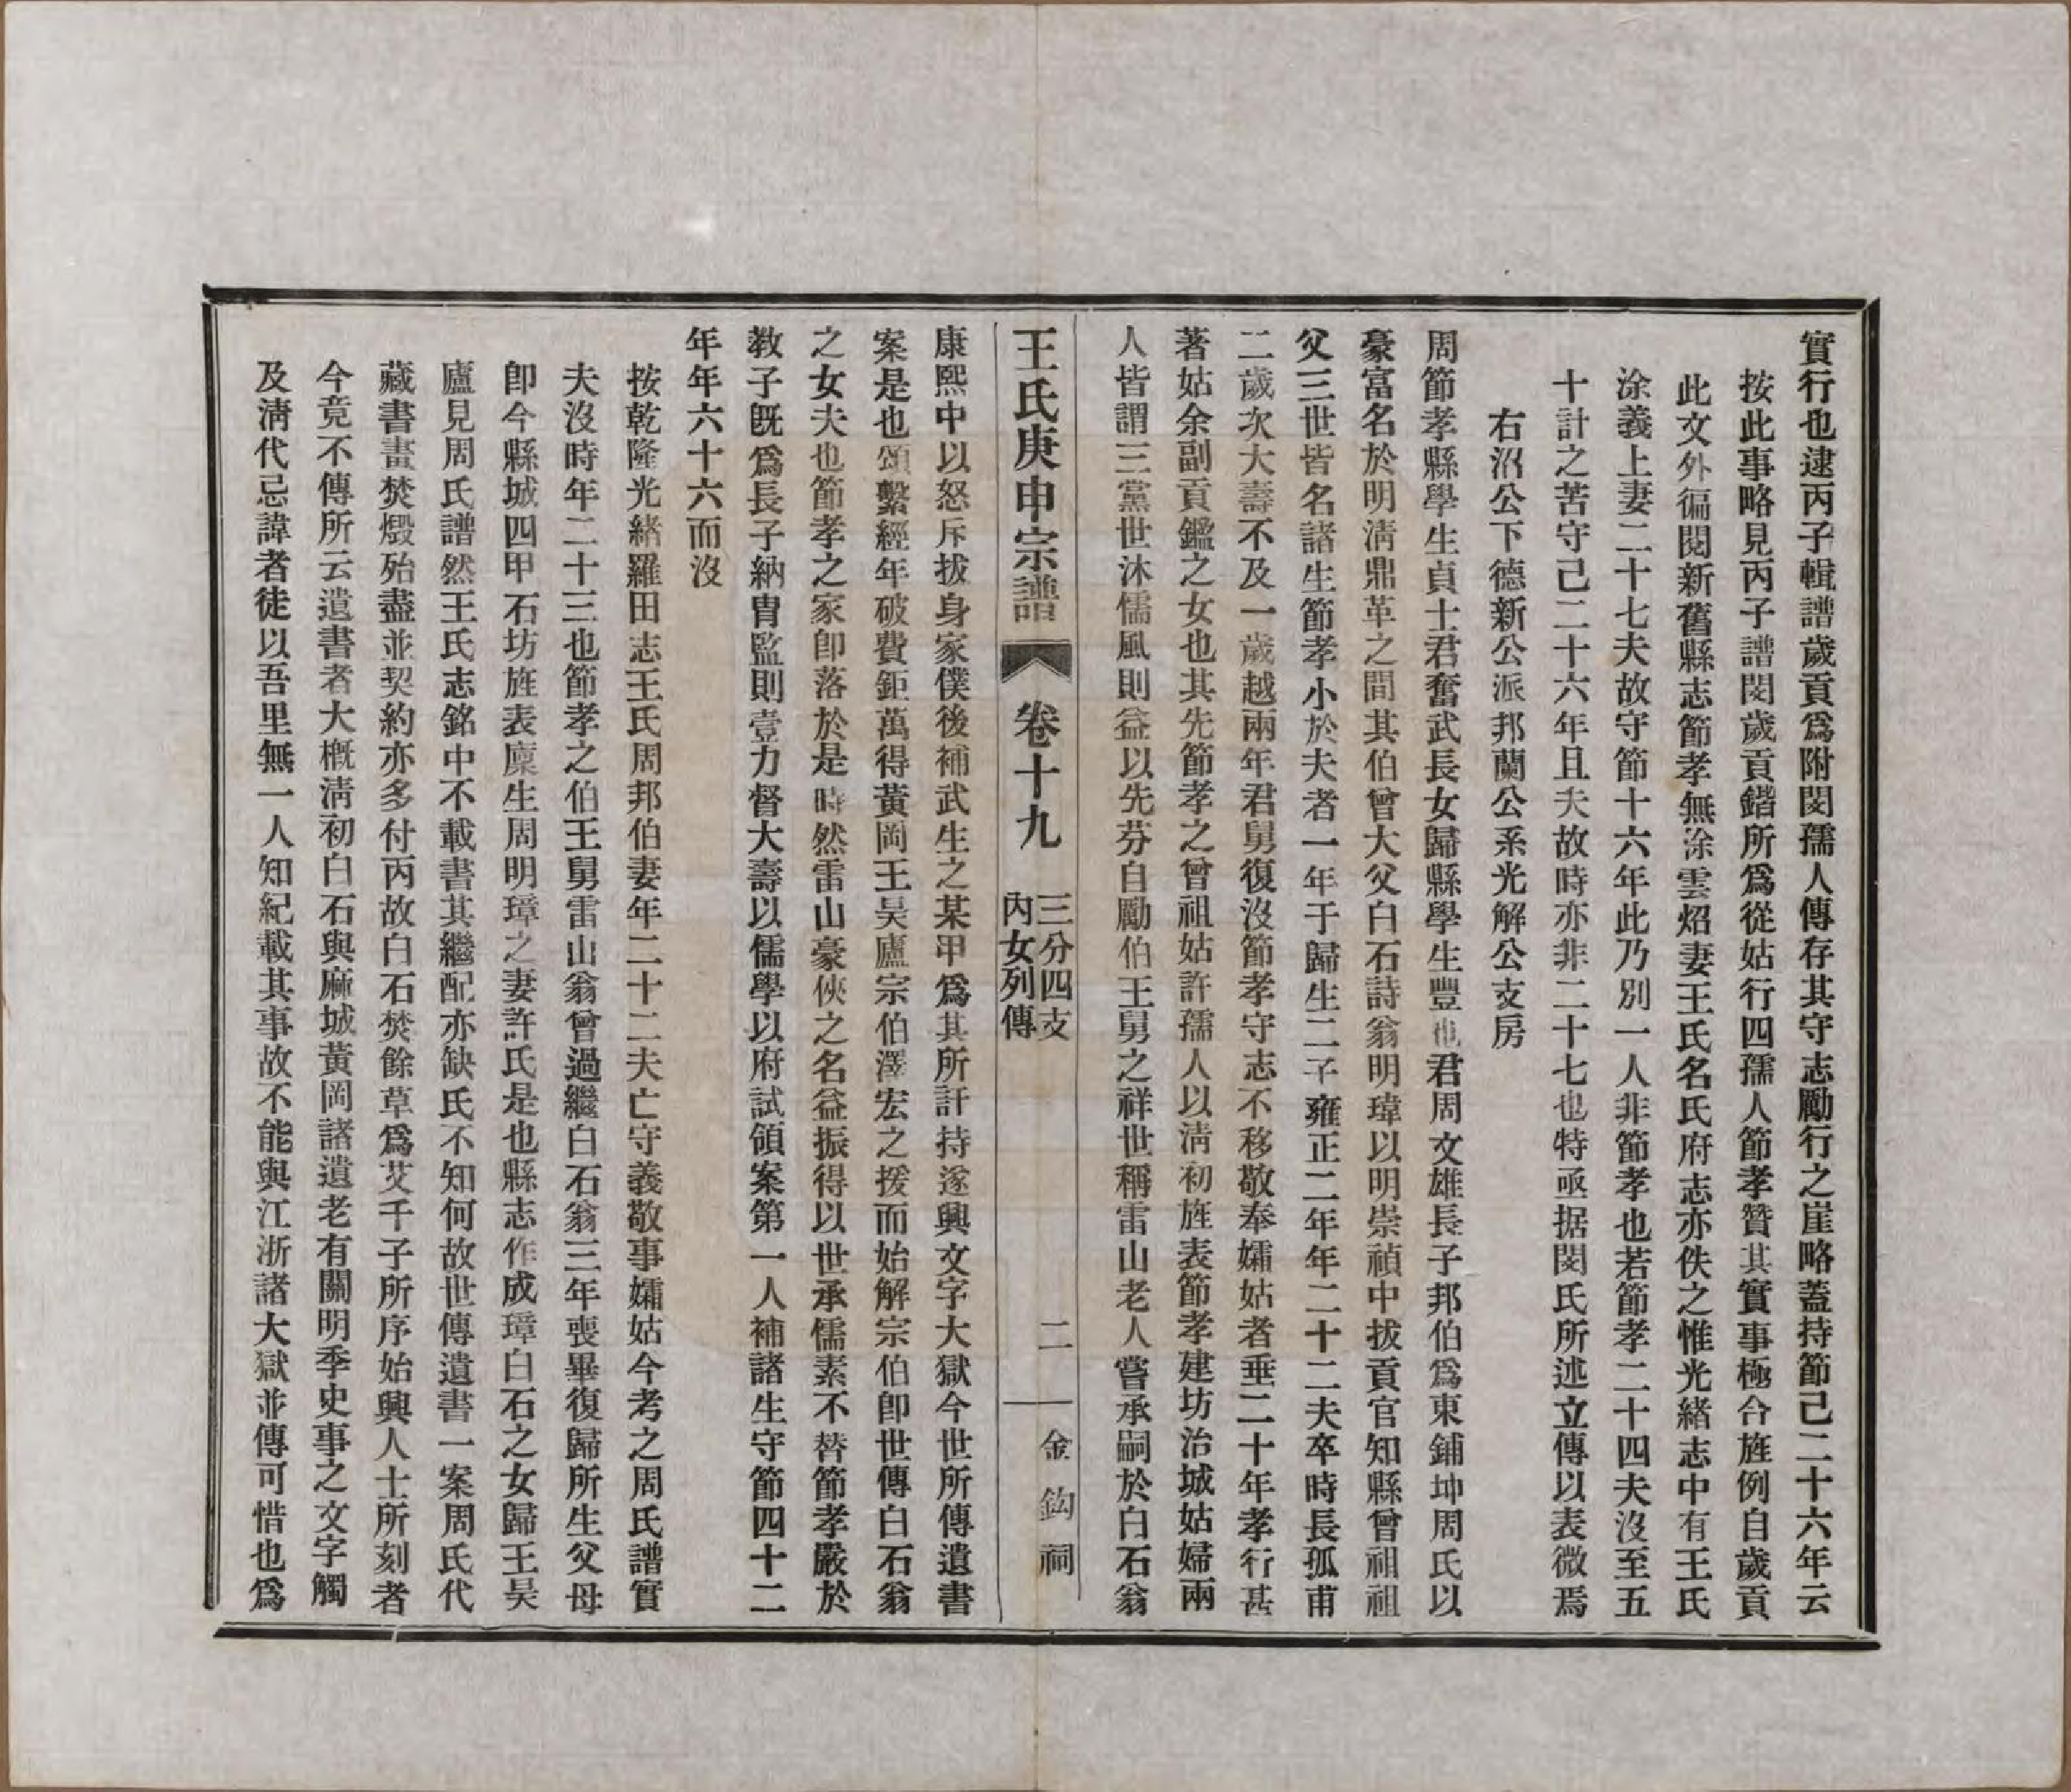 實行也逮丙子輯譜歲貢爲附閔孺人傳存其守志勵行之崖略蓋持節己二十六年云
按此事略見丙子譜閔歲貢鍇所爲從姑行四孺人節孝贊其實事極合旌例自歲貢
此文外徧閱新舊縣志節孝無涂雲炤妻王氏名氏府志亦佚之惟光緒志中有王氏
涂義上妻二十七夫故守節十六年此乃別一人非節孝也若節孝二十四夫沒至五
十計之苦守己二十六年且夫故時亦非二十七也特亟据閔氏所述立傳以表微焉
右沼公下德新公派邦蘭公系光解公支房
周節孝縣學生貞士君奮武長女歸縣學生豐也君周文雄長子邦伯爲東鋪坤周氏以
豪富名於明淸鼎革之間其伯曾大父白石詩翁明瑋以明崇禎中拔貢官知縣曾祖祖
父三世皆名諸生節孝小於夫者一年于歸生二子雍正二年年二十二夫卒時長孤甫
二歲次大壽不及一歲越兩年君舅復沒節孝守志不移敬奉孀姑者垂二十年孝行甚
著姑余副貢鑑之女也其先節孝之曾祖姑許孺人以淸初旌表節孝建坊治城姑婦兩
人皆謂三黨世沐儒風則益以先芬自勵伯王舅之祥世稱雷山老人嘗承嗣於白石翁
王氏庚申宗譜
卷十九
三分四支
內女列傳
二
金鈎祠
康熙中以怒斥拔身家僕後補武生之某甲爲其所訐持遂興文字大獄今世所傳遺書
案是也頌繫經年破費鉅萬得黃岡王昊廬宗伯澤宏之援而始解宗伯卽世傳白石翁
之女夫也節孝之家卽落於是時然雷山豪俠之名益振得以世承儒素不替節孝嚴於
教子旣爲長子納胄監則壹力督大壽以儒學以府試領案第一人補諸生守節四十二
年年六十六而沒
按乾隆光緒羅田志王氏周邦伯妻年二十二夫亡守義敬事孀姑今考之周氏譜實
夫沒時年二十三也節孝之伯王舅雷山翁曾過繼白石翁三年喪畢復歸所生父母
卽今縣城四甲石坊旌表廩生周明璋之妻許氏是也縣志作成璋白石之女歸王昊
廬見周氏譜然王氏志銘中不載書其繼配亦缺氏不知何故世傳遺書一案周氏代
藏書畫焚燬殆盡並契約亦多付丙故白石焚餘草爲艾千子所序始興人士所刻者
今竟不傳所云遺書者大槪淸初白石與麻城黃岡諸遺老有關明季史事之文字觸
及淸代忌諱者徒以吾里無一人知紀載其事故不能與江浙諸大獄並傳可惜也爲